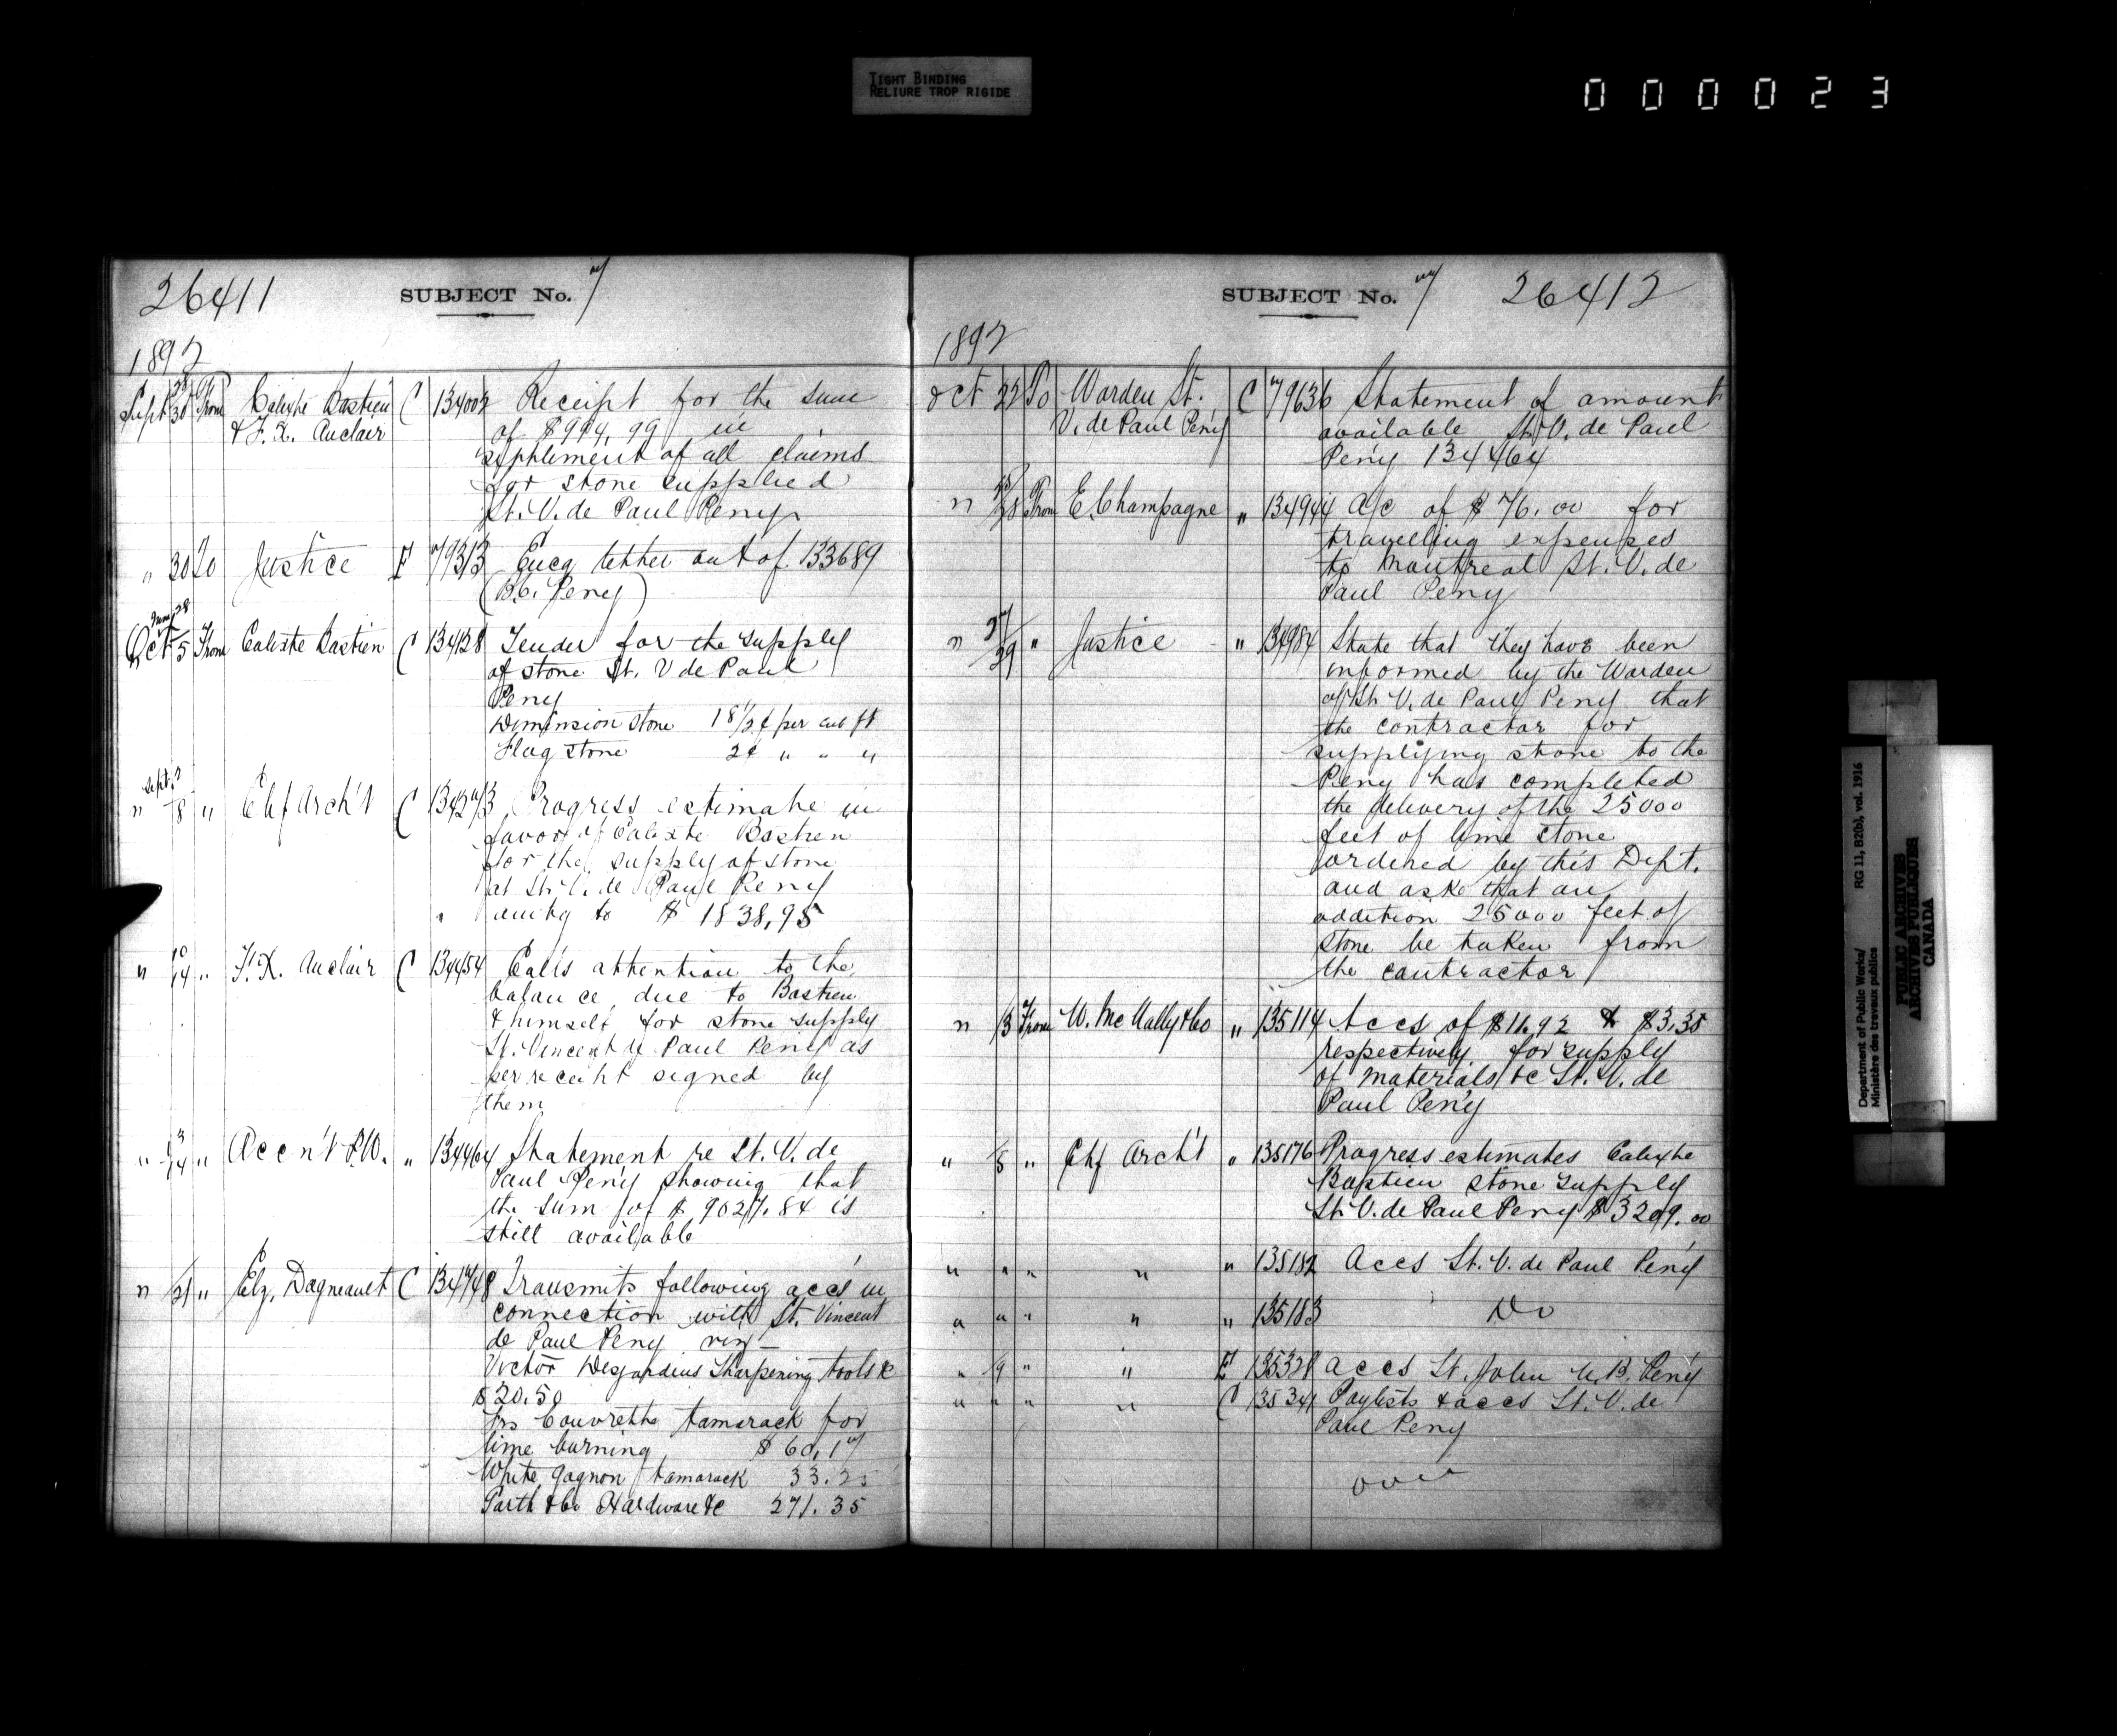 TIGHT BINDING
RELIURE TROP RIGIDE
000023
26411 SUBJECT No. 7
1892
Sept 28/30 From Calixte Bastien & F. X. Auclair C 134002 Receipt for the sum
of $994,99 in
settlement of all claims
for stone supplied
St. V. de Paul Peny
" 30 To Justice E 79313 Encg letter out of 133689
(B.C. Peny)
June 28
Oct 5 From Calixte Bastien C 134128 Tender for the supply
of stone St. V de Paul
Peny
Dimension stone 18 1/2 ¢ per cub ft
Flag stone 2¢ " " "
Sept 7
" 8 " Chf Arch't C 134273 Progress estimate in
favor of Calixte Bastien
for the supply of stone
at St. V. de Paul Peny
amtg to $ 1838,95
" 10/14 " F. X. Auclair C 134454 Calls attention to the
balance due to Bastien
& himself for stone supply
St. Vincent de Paul Peny as
per receipt signed by
them
" 13/14 " Accn't P.W. " 134464 Statement re St. V. de
Paul Peny showing that
the sum of $ 9027.84 is
still available
" 21 " Elz. Dagneault C 134748 Transmits following accs in
connection with St. Vincent
de Paul Peny viz—
Victor Desjardins Sharpening tools &c
$20.50
Jos Couvrette tamarack for
lime burning $ 60,17
White Gagnon tamarack 33.25
Parth & Co Hardware &c 271.35
SUBJECT No. 7 26412
1892
Oct 22 To Warden St. V. de Paul Peny C 79636 Statement of amount
available St. V. de Paul
Peny 134464
" 28 From E. Champagne " 134944 A/c of $76.00 for
travelling expenses
to Montreal St. V. de
Paul Peny
" 27/29 " Justice " 134984 State that they have been
informed by the Warden
of St. V. de Paul Peny that
the contractor for
supplying stone to the
Peny has completed
the delivery of the 25000
feet of lime stone
ordered by this Dept.
and asks that an
addition 25000 feet of
stone be taken from
the contractor
" 3 From W. McNally & Co " 135114 Accs of $11.92 & $3.35
respectively for supply
of materials &c St. V. de
Paul Peny
" 5 " Chf Arch't " 135176 Progress estimates Calixte
Bastien stone supply
St. V. de Paul Peny $3209.00
" " " " " 135182 Accs St. V. de Paul Peny
" " " " " 135183 Do
" 9 " " E 135328 accs St. John N.B. Peny
" " " " C 135341 Paylists & accs St. V. de
Paul Peny
over
Department of Public Works/ RG 11, B2(b), vol. 1916
Ministère des travaux publics
PUBLIC ARCHIVES
ARCHIVES PUBLIQUES
CANADA